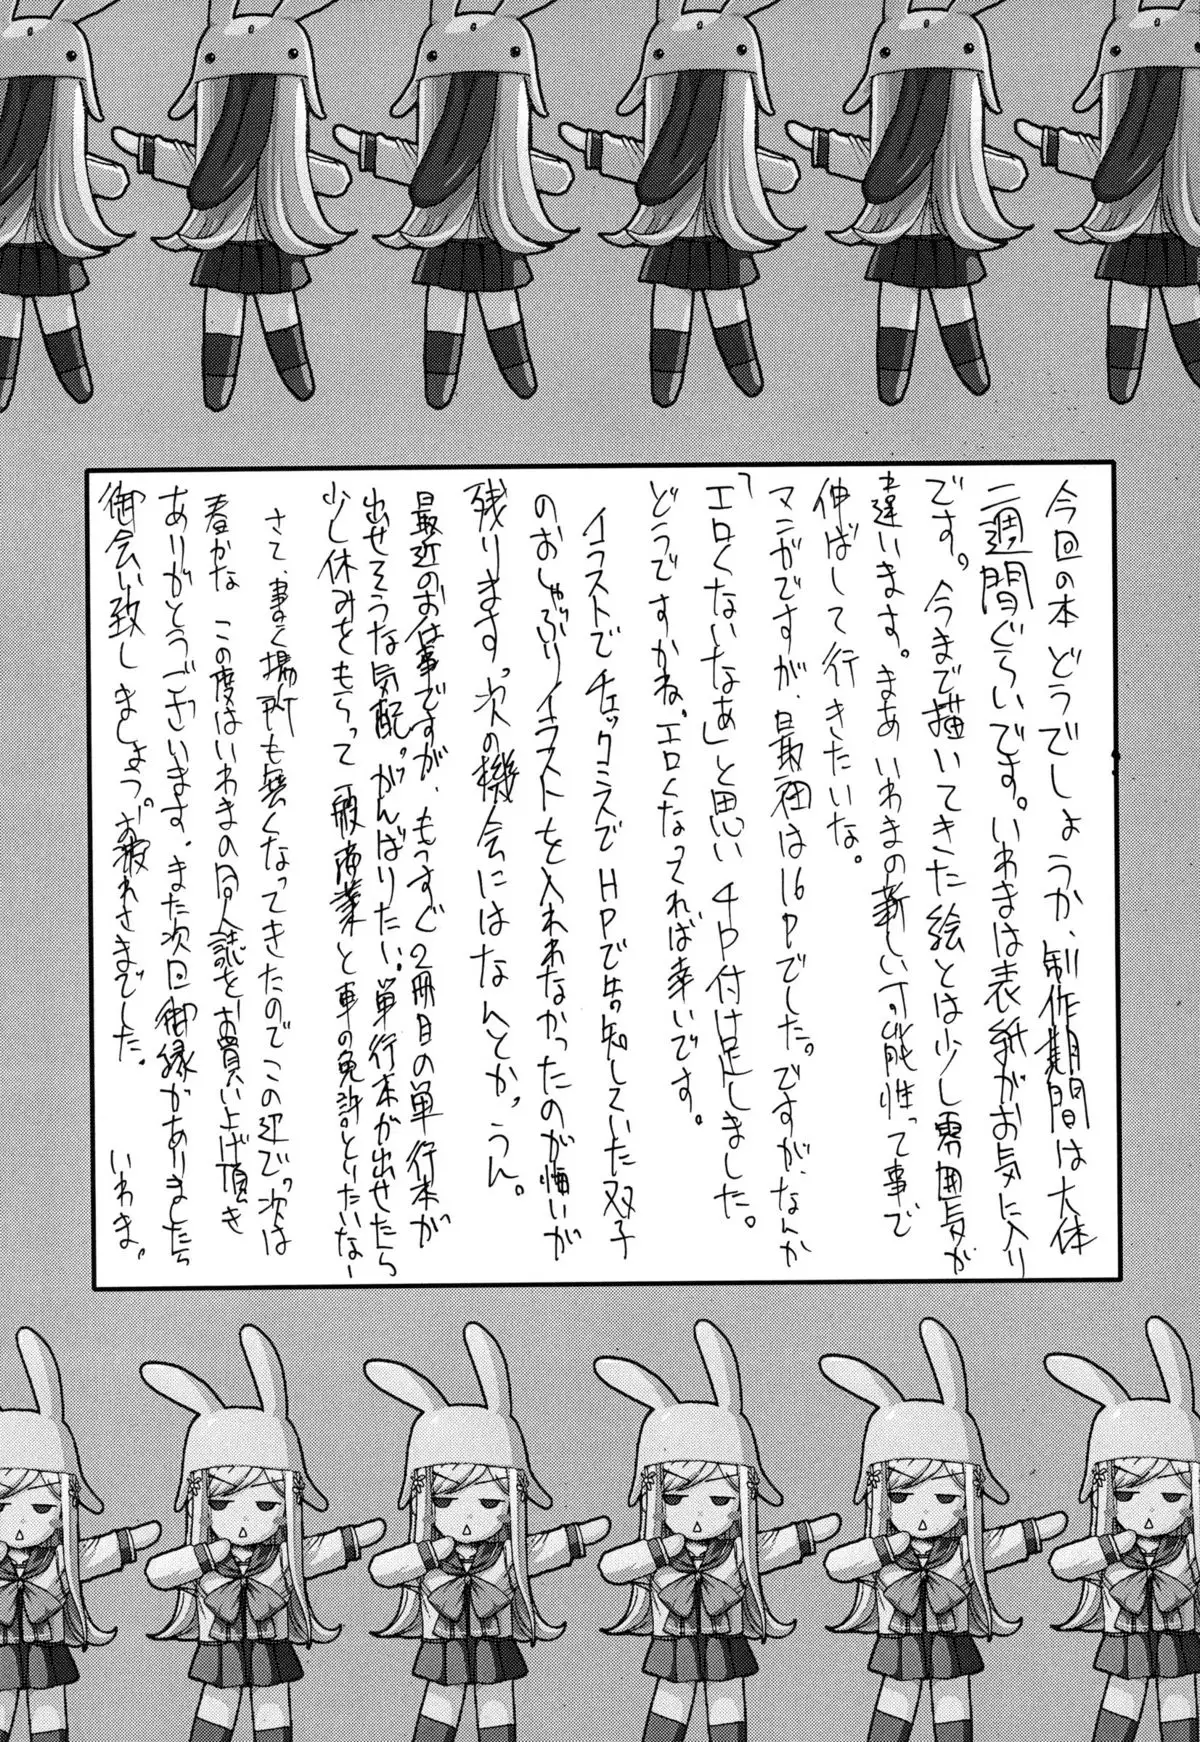 今回の本どうでしょうか、制作期間は大体
二週間ぐらいです。いわまは表紙がお気に入り
です。今まで描いてきた絵とは少し雰囲気が
違います。まあいわまの新しい可能性って事で
伸ばして行きたいな。
マンガですが、最初は16Pでした。ですが、なんか
「エロくないなぁ」と思い4P付け足しました。
どうですかね。エロくなってれば幸いです。
イラストでチェックミスでHPで告知していた双子
のおしゃぶりイラストを入れれなかったのが悔いが
残ります。次の機会にはなんとか、うん。
最近のお仕事ですが、もうすぐ2冊目の単行本が
出せそうな気配。がんばりたい。単行本が出せたら
少し休みをもらって一般商業と車の免許とりたいなー
さて、書く場所も無くなってきたのでこの辺で。次は
春かな この度はいわまの同人誌をお買い上げ頂き
ありがとうございます。また次回御縁がありましたら
御会い致しましょう。お疲れさまでした。
いわま。